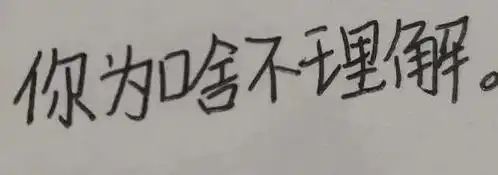 你为啥不理解。